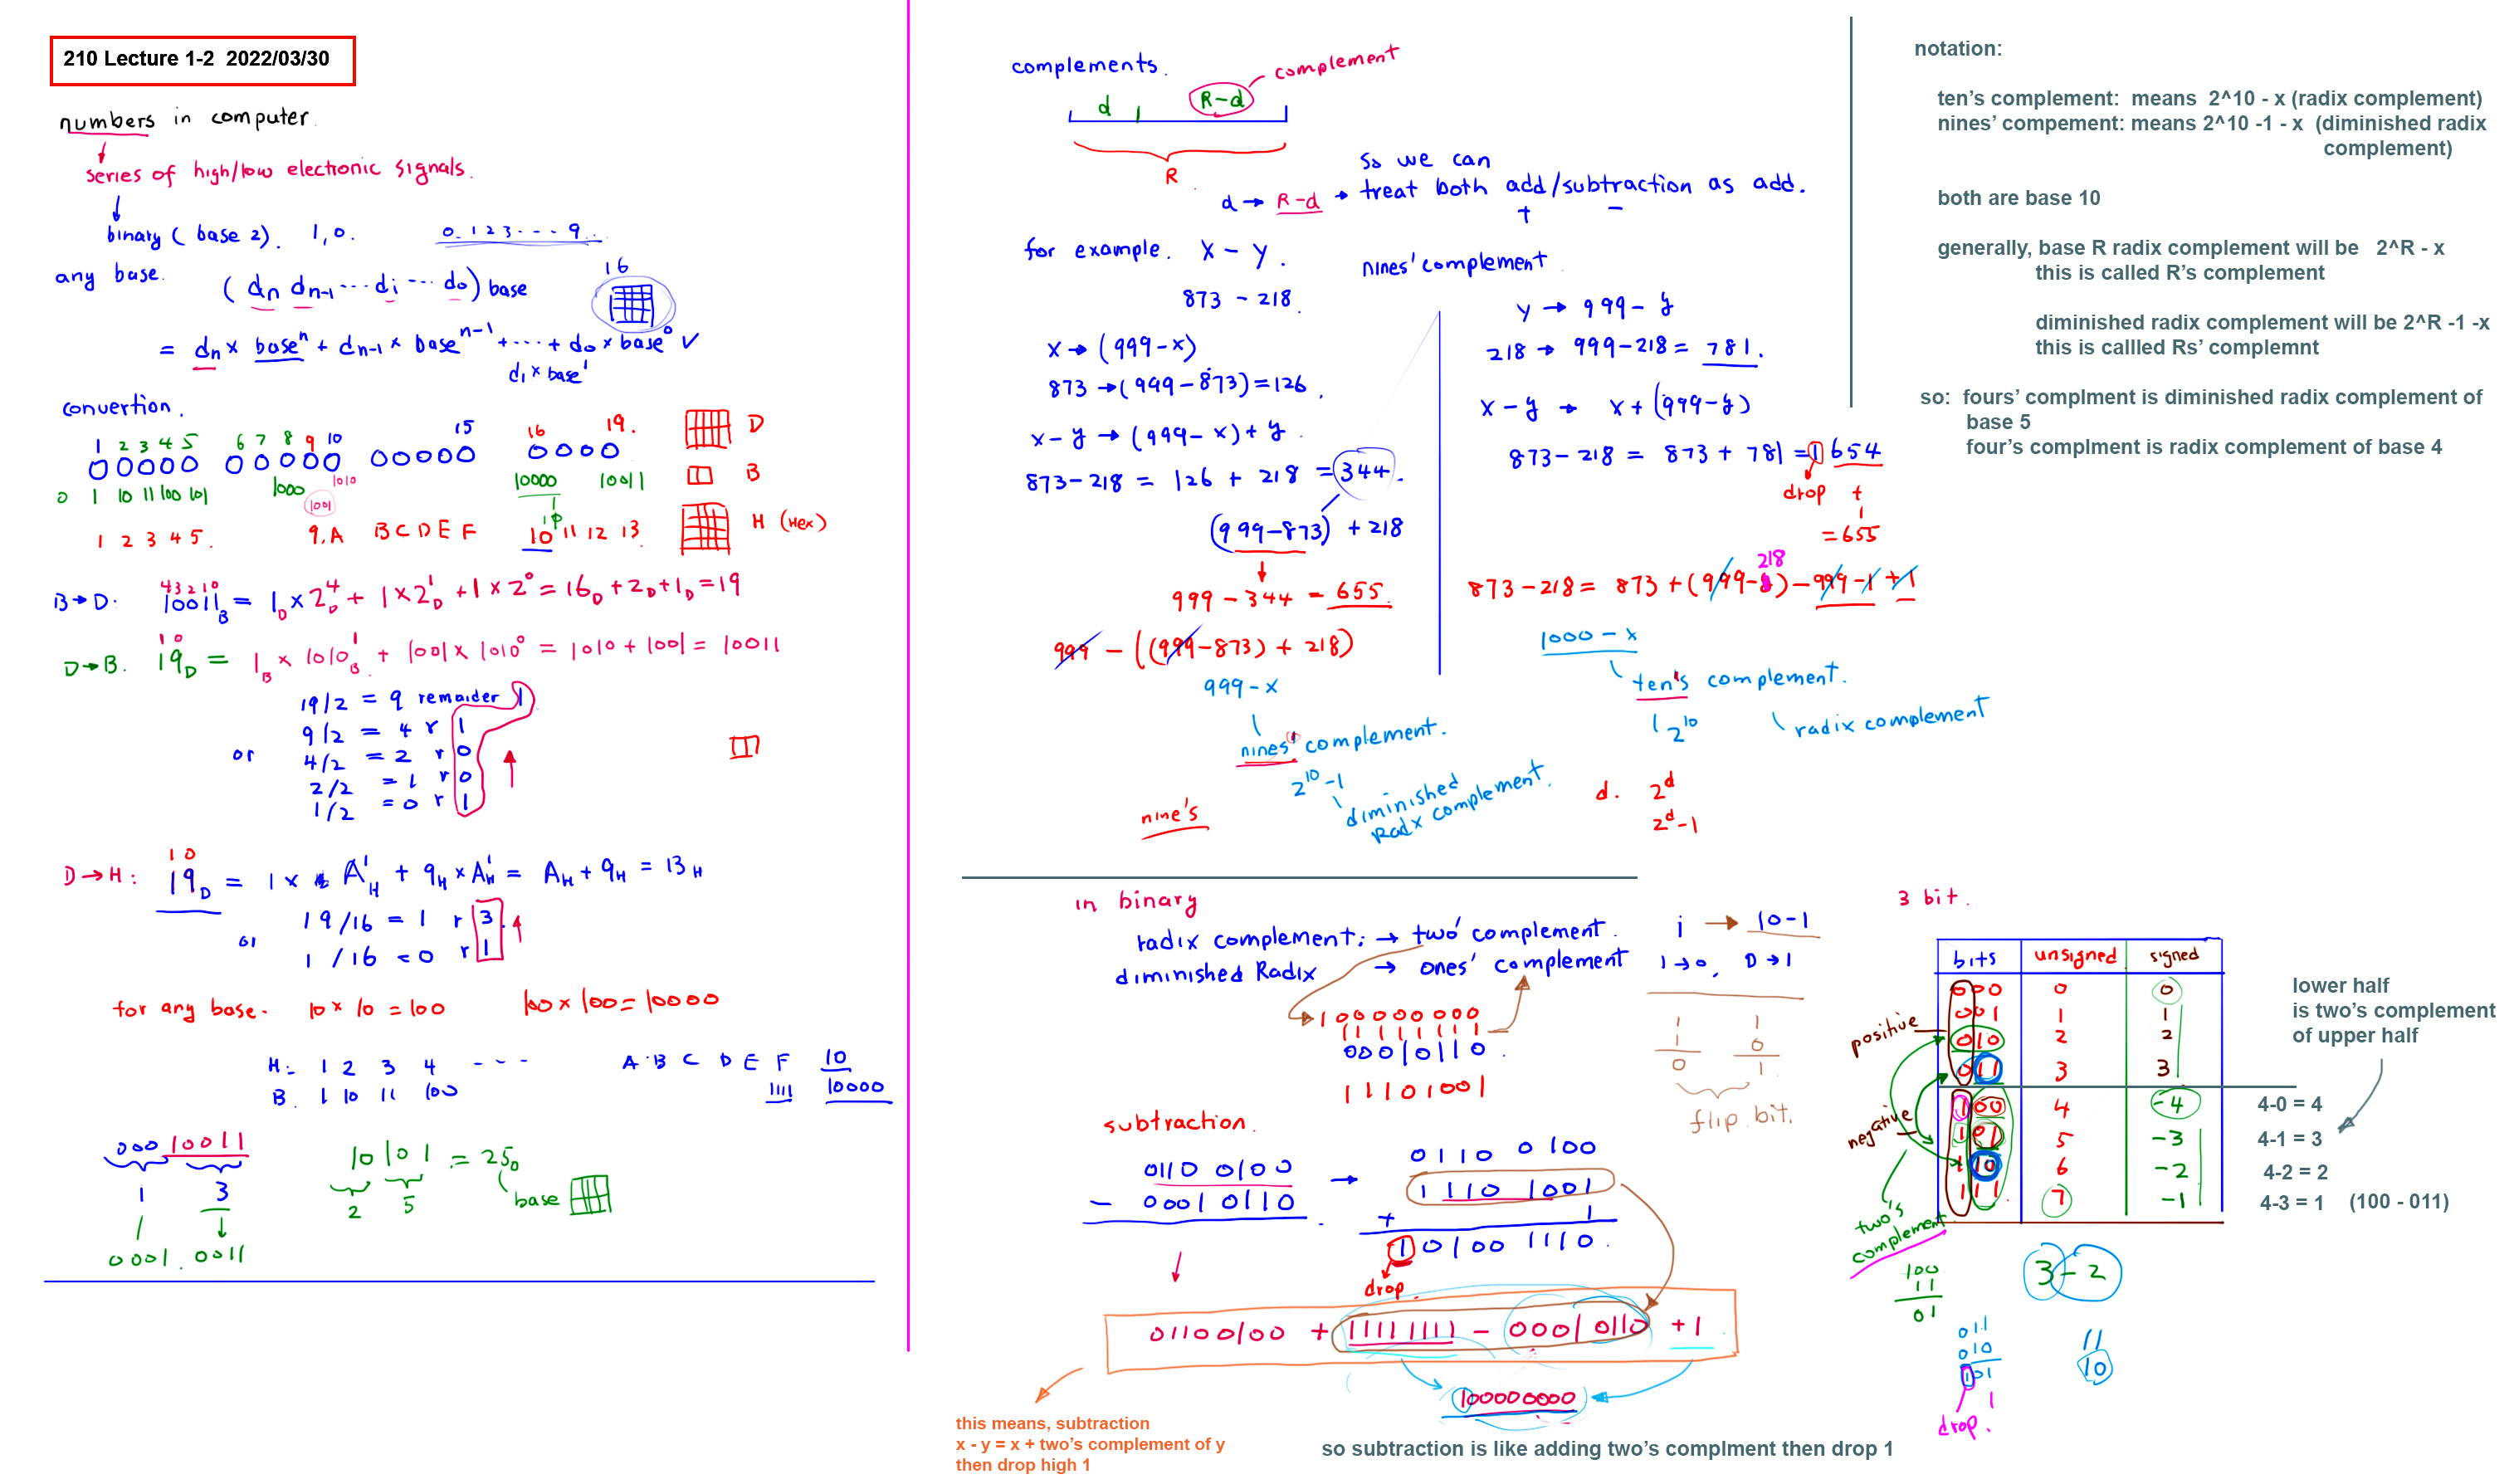 210 Lecture 1-2 2022/03/30
numbers in computer.
series of high/low electronic signals.
binary ( base 2). 1,0. 0.123---9..
any base. (dn dn-1 ... di ... do) base
16
= dn × base^n + dn-1 × base^n-1 + ... + do × base^0 ✓
d1 × base^1
convertion.
1 2 3 4 5 6 7 8 9 10 15 16 19. D
00000 00000 00000 0000
0 1 10 11 100 101 1000 1001 1010 10000 10011 B
1 2 3 4 5. 9.A B C D E F 10 11 12 13. H (Hex)
43210
B→D: 10011B = 1D × 2D^4 + 1×2D^1 + 1×2^0 = 16D + 2D + 1D = 19
1 0
D→B. 19D = 1B × 1010B^1 + 1001 × 1010^0 = 1010 + 1001 = 10011
19/2 = 9 remaider 1
9/2 = 4 r 1
or 4/2 = 2 r 0
2/2 = 1 r 0
1/2 = 0 r 1
1 0
D→H: 19D = 1 × AH^1 + 9H × AH^1 = AH + 9H = 13H
19/16 = 1 r 3.
or
1/16 = 0 r 1
for any base. 10 × 10 = 100 100 × 100 = 10000
H: 1 2 3 4 --- A B C D E F 10
B. 1 10 11 100 1111 10000
00010011
1 3
0001.0011
10101 = 25D
2 5
base
complements.
complement
d R-d
R
d → R-d → so we can
treat both add/subtraction as add.
+ -
for example. X - Y.
873 - 218.
x → (999-x)
873 → (999-873) = 126.
x-y → (999-x)+y.
873-218 = 126 + 218 = 344.
(999-873) + 218
999 - 344 = 655.
999 - ((999-873) + 218)
999-x
nines' complement.
2^10 -1
diminished
radx complement.
nine's
nines' complement
Y → 999-y
218 → 999-218 = 781.
x-y → x+(999-y)
873-218 = 873 + 781 = 1654
drop +
1
= 655
218
873-218 = 873 + (999-) - 999 - 1 + 1
1000 - x
ten's complement.
2^10
radix complement
d. 2^d
2^d-1
notation:
ten’s complement: means 2^10 - x (radix complement)
nines’ compement: means 2^10 -1 - x (diminished radix
complement)
both are base 10
generally, base R radix complement will be 2^R - x
this is called R’s complement
diminished radix complement will be 2^R -1 -x
this is callled Rs’ complemnt
so: fours’ complment is diminished radix complement of
base 5
four’s complment is radix complement of base 4
in binary
radix complement: → two' complement.
diminished Radix → ones' complement
100000000
11111111
00010110.
11101001
i → 10-1
1→0, 0→1
1 1
1 0
0 1
flip bit.
subtraction.
0110 0100
- 00010110
→
0110 0100
1 1110 1001
+ 1
1 0100 1110.
drop.
01100100 + 11111111 - 00010110 + 1
100000000
this means, subtraction
x - y = x + two’s complement of y
then drop high 1
so subtraction is like adding two’s complment then drop 1
3 bit.
bits unsigned signed
000 0 0
001 1 1
010 2 2
011 3 3
100 4 -4
101 5 -3
110 6 -2
111. 7 -1
positive
negative
two's
complement
lower half
is two’s complement
of upper half
4-0 = 4
4-1 = 3
4-2 = 2
4-3 = 1 (100 - 011)
100
11
01
3-2
011
010
101
1
drop.
11
10